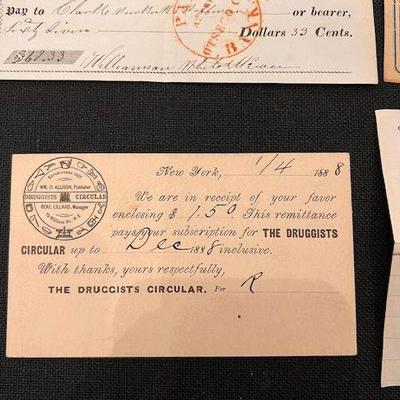 Pay to Clark or bearer,
Sixty Seven Dollars 33 Cents.
$67.33
OTSEGO CO.
BA
ESTABLISHED 1857
WM. O. ALLISON, Publisher
DRUGGISTS CIRCULAR
BENJ. LILLARD, Manager
New York, 1/4 1888
We are in receipt of your favor
enclosing $ 1.50 This remittance
pays your subscription for THE DRUGGISTS
CIRCULAR up to Dec 1888 inclusive.
With thanks, yours respectfully,
THE DRUGGISTS CIRCULAR, Per R